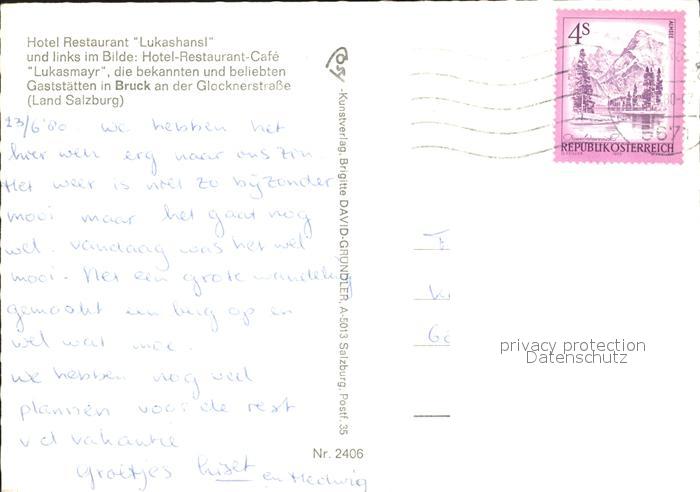 Hotel Restaurant "Lukashansl"
und links im Bilde: Hotel-Restaurant-Café
"Lukasmayr", die bekannten und beliebten
Gaststätten in Bruck an der Glocknerstraße
(Land Salzburg)
13/6 '80 we hebben het
hier weh erg naar ons zin.
Het weer is niet zo bijzonder
mooi maar het gaat nog
wel. vandaag was het wel
mooi. Net een grote wandeling
gemaakt een berg op en
wel wat moe.
we hebben nog veel
plannen voor de rest
v d vakantie
Groetjes Liset en Hedwig
Kunstverlag, Brigitte DAVID-GRÜNDLER, A-5013 Salzburg, Postf. 35
Nr. 2406
4s
ALMSEE
REPUBLIK ÖSTERREICH
privacy protection
Datenschutz